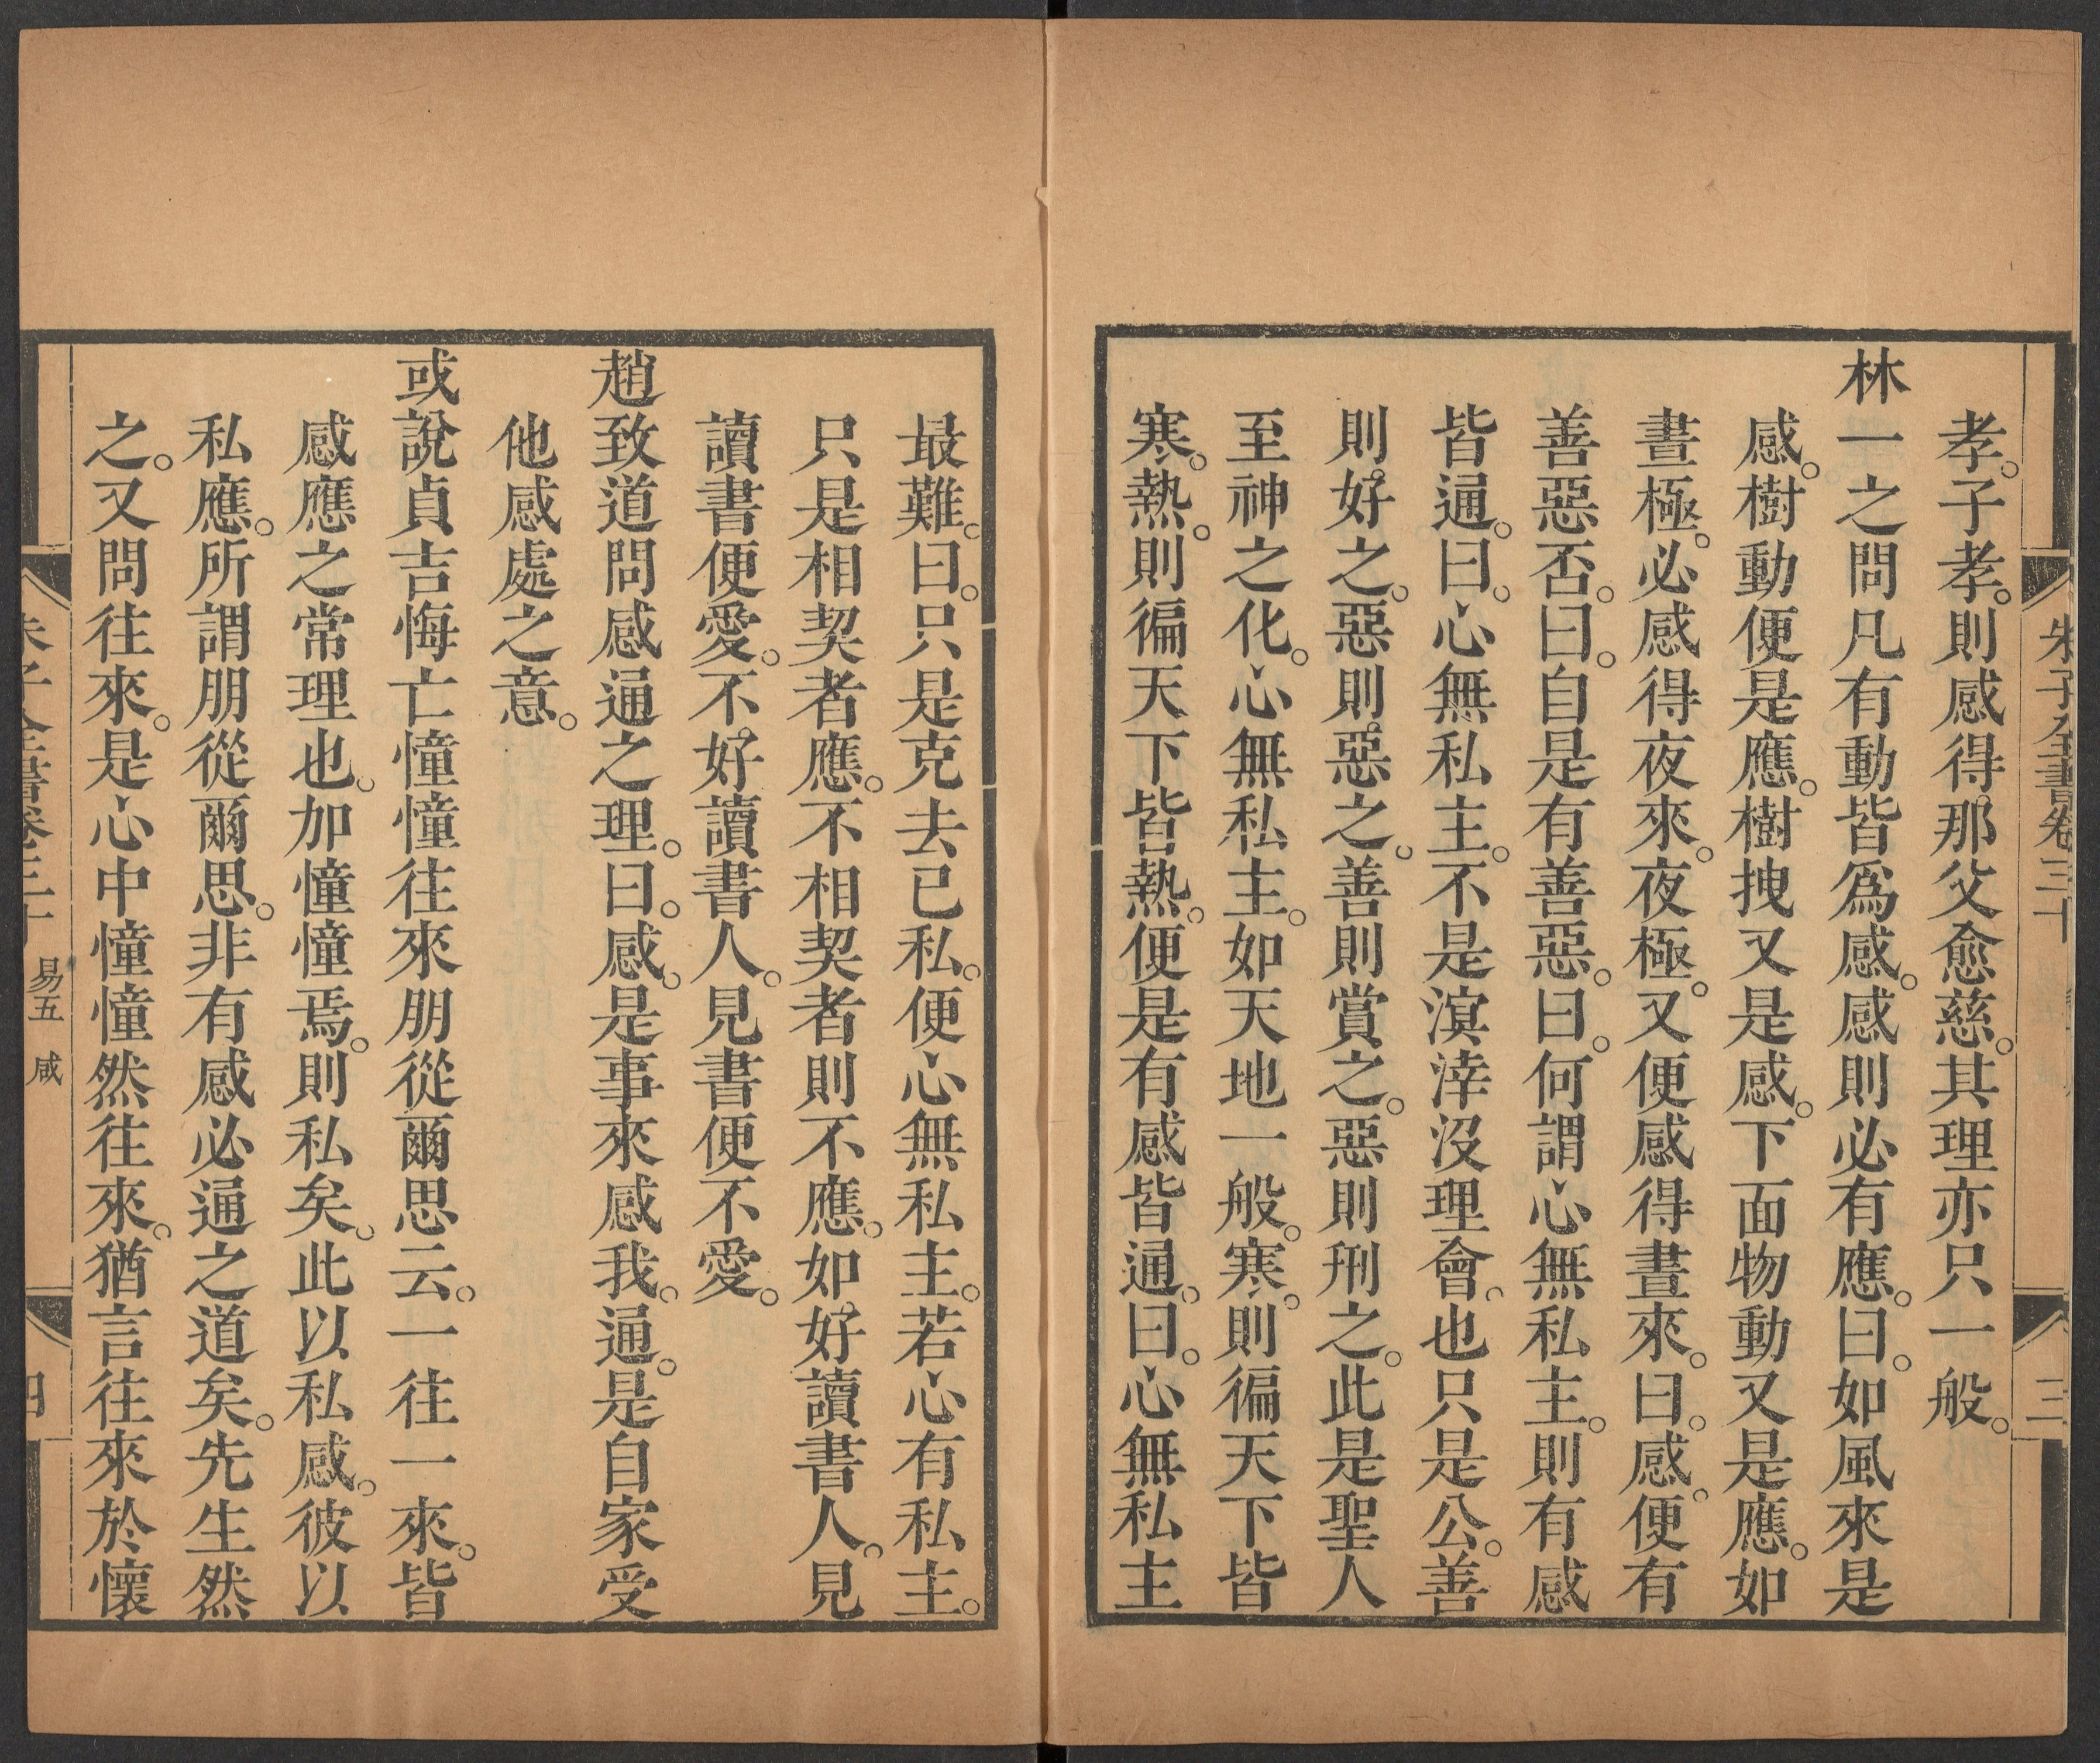 朱子全書卷三十
三
孝。子孝。則感得那父愈慈。其理亦只一般。
林一之問凡有動皆為感。感則必有應。曰。如風來是
感。樹動便是應。樹拽又是感。下面物動又是應。如
晝極。必感得夜來。夜極。又便感得晝來。曰。感。便有
善惡否。曰。自是有善惡。曰。何謂心無私主。則有感
皆通。曰。心無私主。不是溟涬沒理會。也只是公。善
則好之。惡則惡之。善則賞之。惡則刑之。此是聖人
至神之化。心無私主。如天地一般。寒。則徧天下皆
寒。熱。則徧天下皆熱。便是有感皆通。曰。心無私主
最難。曰。只是克去已私。便心無私主。若心有私主。
只是相契者應。不相契者則不應。如好讀書人。見
讀書便愛。不好讀書人。見書便不愛。
趙致道問感通之理。曰。感。是事來感我。通。是自家受
他感處之意。
或說貞吉悔亡憧憧往來朋從爾思云。一往一來。皆
感應之常理也。加憧憧焉。則私矣。此以私感。彼以
私應。所謂朋從爾思。非有感必通之道矣。先生然
之。又問往來。是心中憧憧然往來。猶言往來於懷
朱子全書卷三十 易五 咸
四